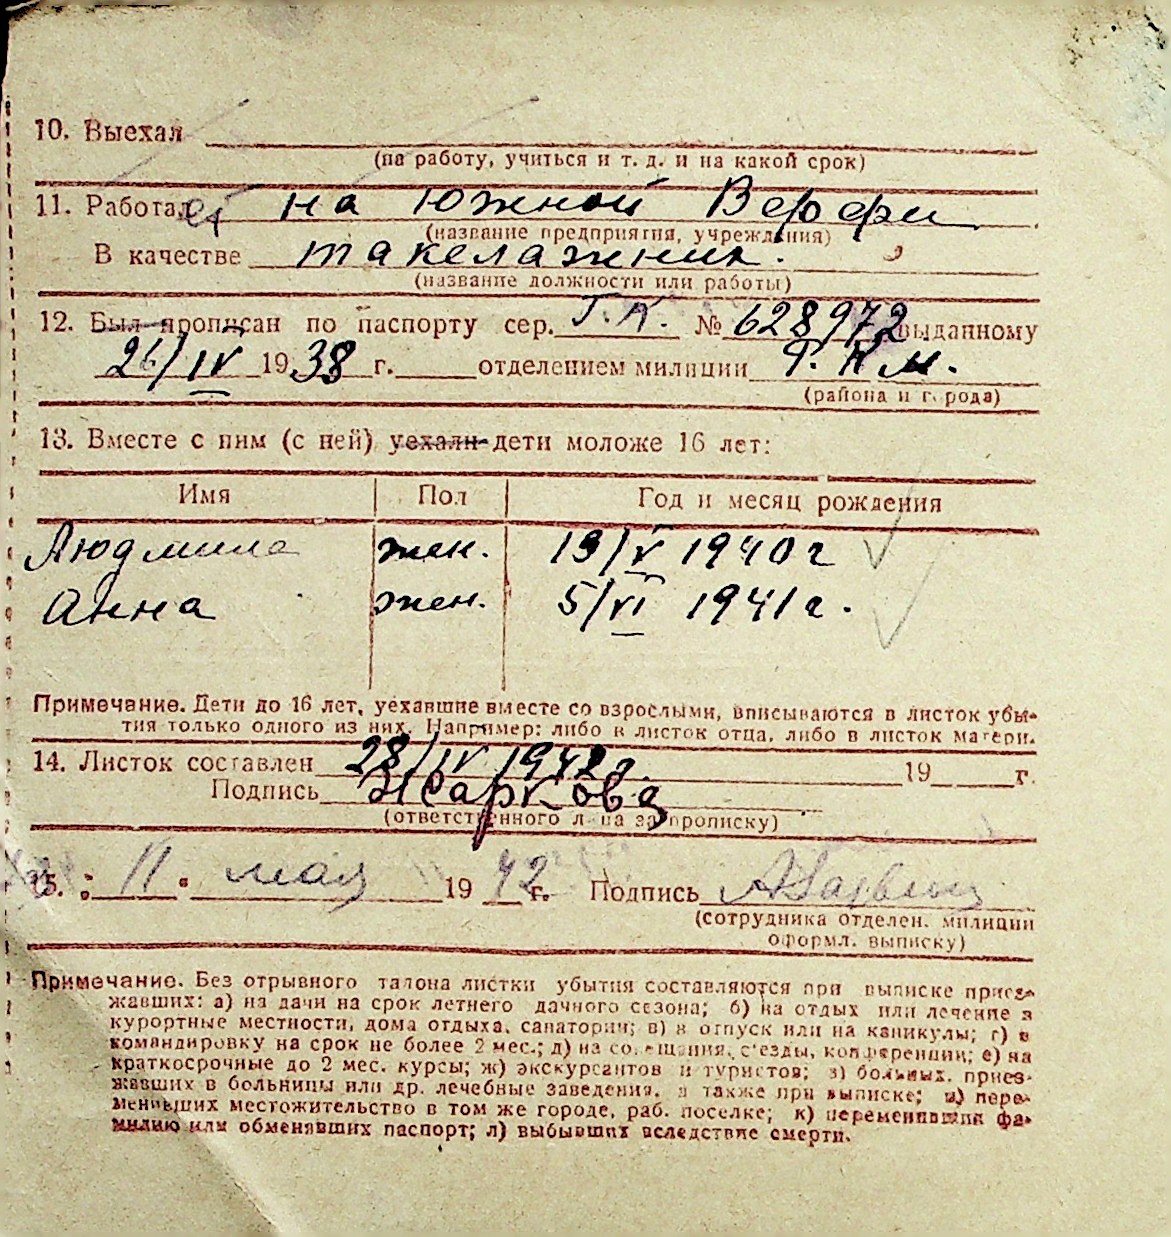 10. Выехал
(на работу, учиться и т. д. и на какой срок)
11. Работает на южной Верфи
(название предприятия, учреждения)
В качестве такелажник.
(название должности или работы)
12. Был прописан по паспорту сер. Г.К. № 628972 выданному
26/IV 1938 г. отделением милиции Р.К.М.
(района и города)
13. Вместе с ним (с ней) уехали дети моложе 16 лет:
Имя Пол Год и месяц рождения
Людмила жен. 19/V 1940 г
Анна жен. 5/VI 1941 г.
Примечание. Дети до 16 лет, уехавшие вместе со взрослыми, вписываются в листок убы-
тия только одного из них. Например: либо в листок отца, либо в листок матери.
14. Листок составлен 28/IV 1942 г. 19 г.
Подпись Жаркова
(ответственного лица за прописку)
15. " 11 " мая 19 42 г. Подпись
(сотрудника отделен. милиции
оформл. выписку)
Примечание. Без отрывного талона листки убытия составляются при выписке приез-
жавших: а) на дачи на срок летнего дачного сезона; б) на отдых или лечение в
курортные местности, дома отдыха, санатории; в) в отпуск или на каникулы; г) в
командировку на срок не более 2 мес.; д) на совещания, съезды, конференции; е) на
краткосрочные до 2 мес. курсы; ж) экскурсантов и туристов; з) больных, приез-
жавших в больницы или др. лечебные заведения, а также при выписке; и) пере-
менивших местожительство в том же городе, раб. поселке; к) переменивших фа-
милию или обменявших паспорт; л) выбывших вследствие смерти.